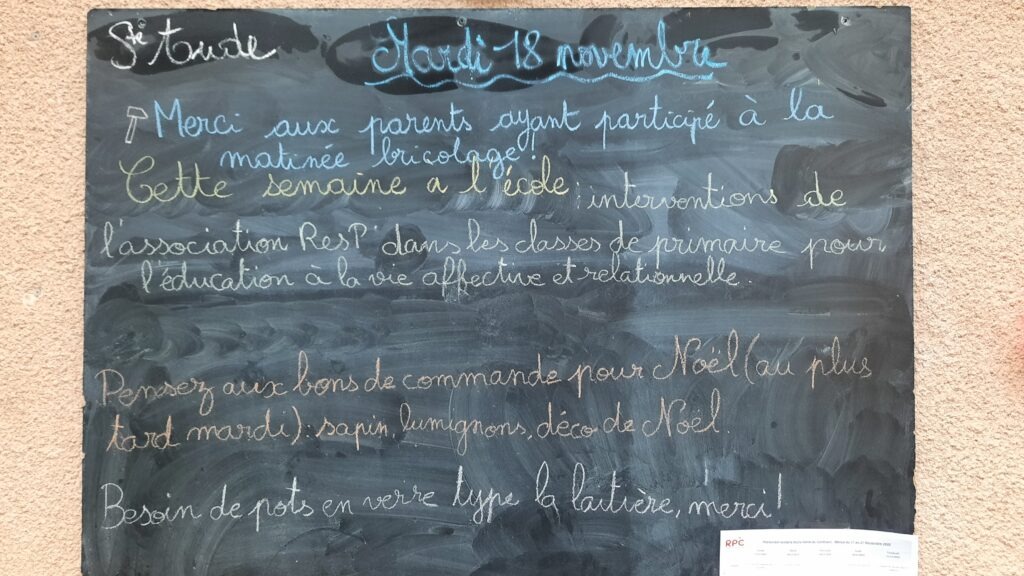 Ste Aude
Mardi 18 novembre
Merci aux parents ayant participé à la
matinée bricolage !
Cette semaine a l'école : interventions de
l'association ResP dans les classes de primaire pour
l'éducation à la vie affective et relationnelle.
Pensez aux bons de commande pour Noël (au plus
tard mardi) : sapin, lumignons, déco de Noël.
Besoin de pots en verre type la laitière, merci !
RPC